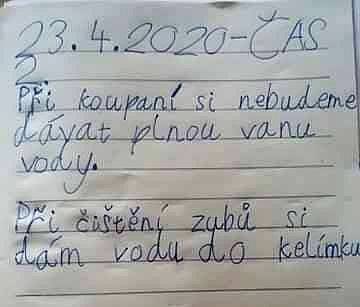 23.4.2020-ČAS
2
Při koupaní si nebudeme
dávat plnou vanu
vody.
Při čištění zubů si
dám vodu do kelímku